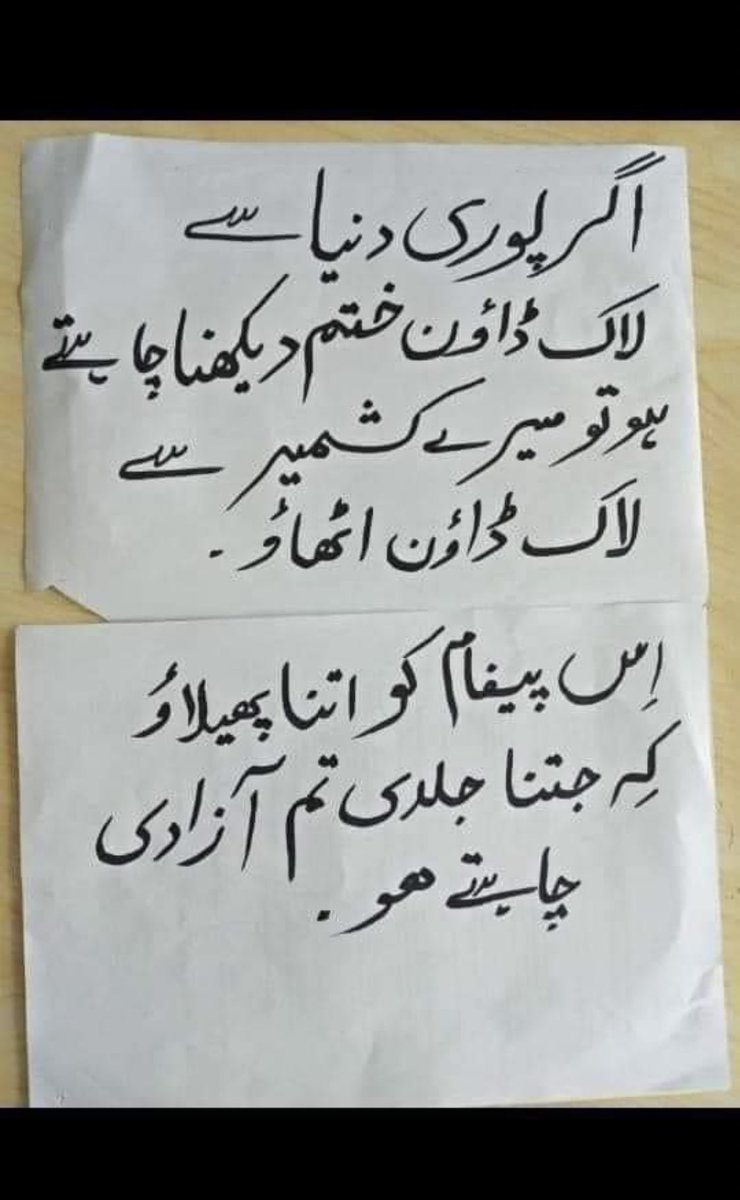 اگر پوری دنیا سے
لاک ڈاؤن ختم دیکھنا چاہتے
ہو تو میرے کشمیر سے
لاک ڈاؤن اٹھاؤ۔
اِس پیغام کو اتنا پھیلاؤ
کہ جتنا جلدی تم آزادی
چاہتے ھو۔